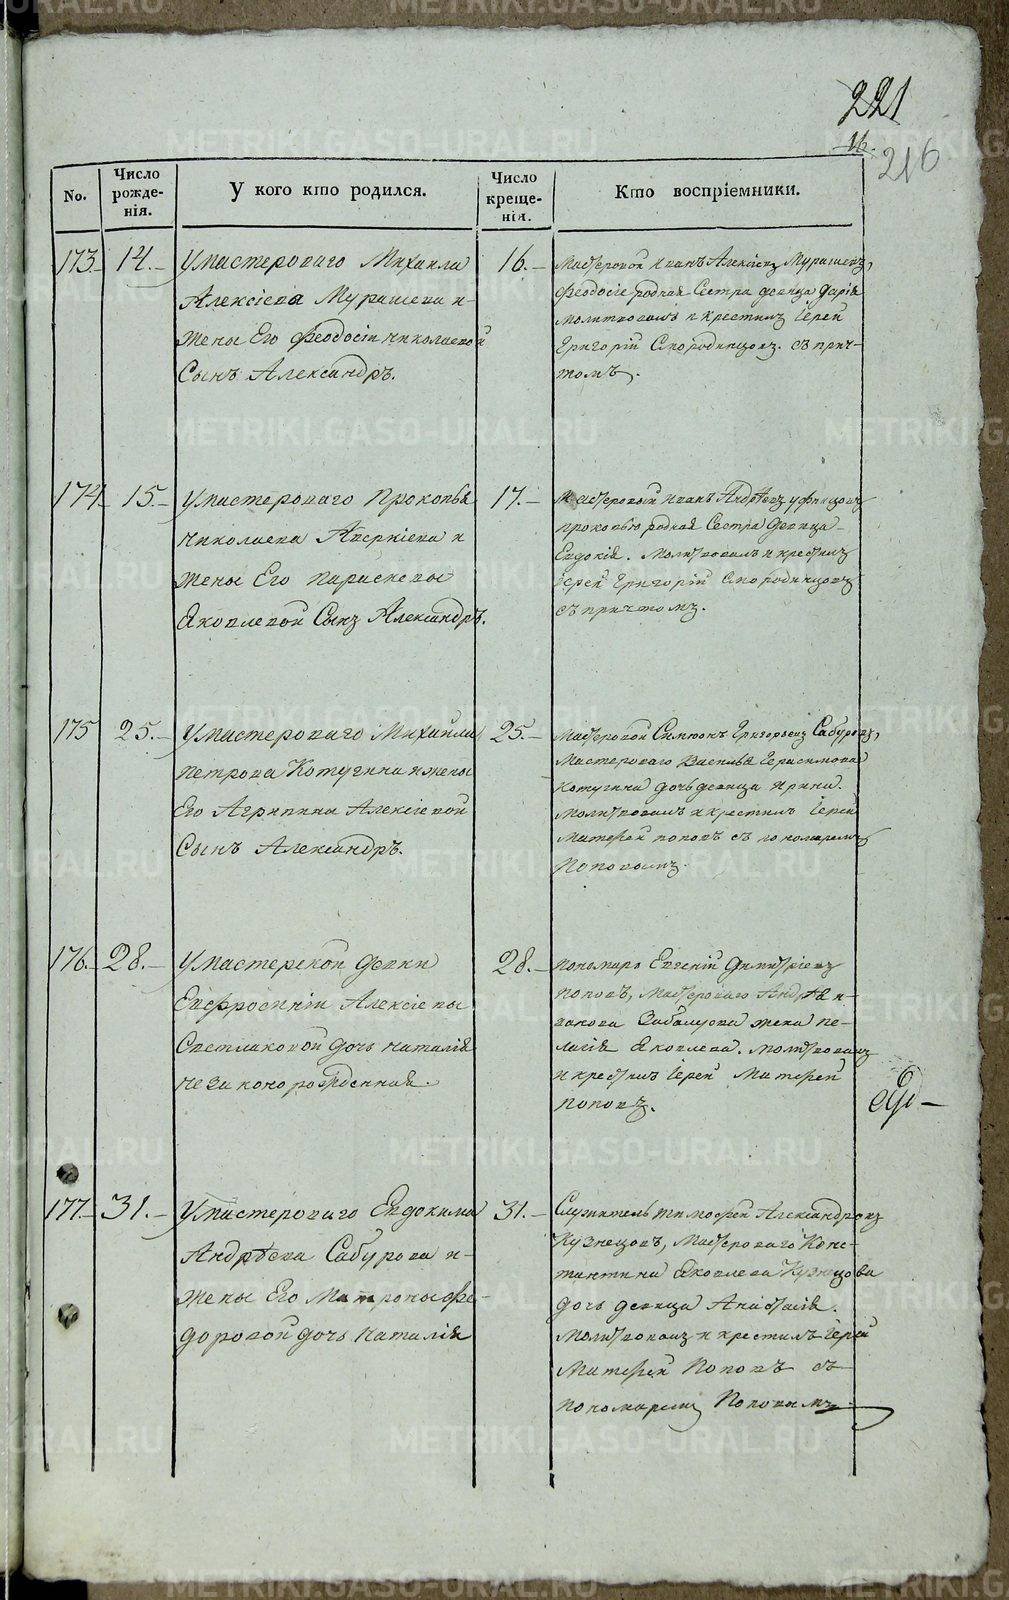 221
16.
216
No.
Число рожде-нія.
У кого кто родился.
Число креще-нія.
Кто воспріемники.
173
14.
У мастероваго Михаила
Алексіева Мурашева и
жены Его Феодосіи Николаевой
Сынъ Александръ.
16.
Мастеровой Иванъ Алексіевъ Мурашевъ,
Феодосіе родная Сестра девица Дарія
молитвовалъ и крестилъ Іерей
Григорій Смородинцовъ. съ прич-
томъ.
174
15.
У мастероваго Прокопья
Николаева Аверкіева и
жены Его Парасковьи
Яковлевой Сынъ Александръ.
17.
Мастеровый Иванъ Андрѣевъ
прокопью родная Сестра девица
Евдокія. Молитвовалъ и крестилъ
Іерей Григорій Смородинцовъ
съ причтомъ.
175
25.
У мастероваго Михайла
Петрова Котугина и жены
Его Агрипины Алексіевой
Сынъ Александръ.
25.
Мастеровой Симионъ Григорьевъ Сабуровъ,
Мастероваго Василья Герасимова
Котугина дочь девица Ирина.
Молитвовалъ и крестилъ Іерей
Матфей Поповъ съ пономаремъ
Поповымъ.
176.
28.
У мастерской девки
Евфросиніи Алексіевы
Светлаковой дочь Наталія
незаконорожденная.
28.
Пономарь Евгеній Димитріевъ
Поповъ, Мастероваго Андрѣя И-
ванова Забалуева жена Пе-
лагія Яковлева. Молитвовалъ
и крестилъ Іерей Матфей
Поповъ.
177.
31.
У мастероваго Евдокима
Андрѣева Сабурова и
жены Его Матроны Фе-
доровой дочь Наталія
31.
Служитель Тимофей Александровъ
Кузнецовъ, Мастероваго Конс-
тантина Яковлева Кузнецова
дочь девица Анастасія.
Молитвовалъ и крестилъ Іерей
Матфей Поповъ съ
пономаремъ Поповымъ
METRIKI.GASO-URAL.RU